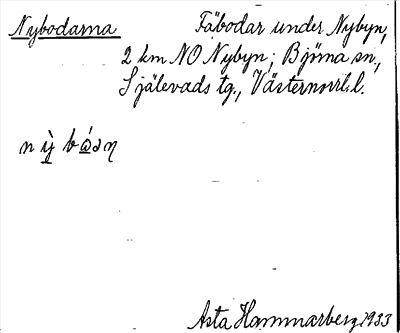 Nybodarna Fäbodar under Nybyn,
2 km NO Nybyn; Björna sn.,
Själevads tg., Västernorrl. l.
Asta Hammarberg 1933